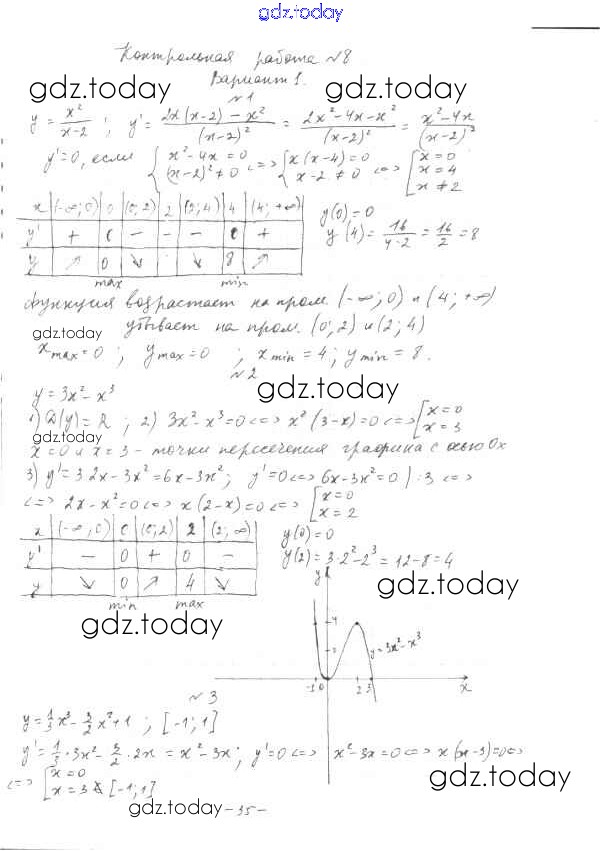 gdz.today
Контрольная работа №8
gdz.today gdz.today
Вариант 1.
№1
y = x²/(x-2) ; y' = (2x(x-2) - x²)/(x-2)² = (2x²-4x-x²)/(x-2)² = (x²-4x)/(x-2)²
y'=0, если { x²-4x=0 (x-2)²≠0 <=> { x(x-4)=0 x-2≠0 <=> [ x=0 x=4 x≠2
x | (-∞;0) | 0 | (0;2) | 2 | (2;4) | 4 | (4;+∞)
y' | + | 0 | - | - | - | 0 | +
y | ↗ | 0 | ↘ | | ↘ | 8 | ↗
max min
y(0)=0
y(4) = 16/(4-2) = 16/2 = 8
функция возрастает на пром. (-∞;0) и (4;+∞)
gdz.today убывает на пром. (0;2) и (2;4)
x max=0 ; y max=0 ; x min=4 ; y min=8.
№2
gdz.today
y=3x²-x³
1) D(y)=R ; 2) 3x²-x³=0 <=> x²(3-x)=0 <=> [ x=0 x=3
gdz.today
x=0 и x=3 - точки пересечения графика с осью Ox
3) y'=3·2x-3x²=6x-3x² ; y'=0 <=> 6x-3x²=0 | :3 <=>
<=> 2x-x²=0 <=> x(2-x)=0 <=> [ x=0 x=2
x | (-∞;0) | 0 | (0;2) | 2 | (2;∞)
y' | - | 0 | + | 0 | -
y | ↘ | 0 | ↗ | 4 | ↘
min max
y(0)=0
y(2)=3·2²-2³=12-8=4
gdz.today gdz.today
y
4
2
y=3x²-x³
-1 0 2 3 x
№3
y=1/3x³-3/2x²+1 ; [-1;1]
y'=1/3·3x²-3/2·2x=x²-3x ; y'=0 <=> x²-3x=0 <=> x(x-3)=0 <=>
<=> [ x=0 x=3 ∉ [-1;1]
gdz.today
gdz.today -35-